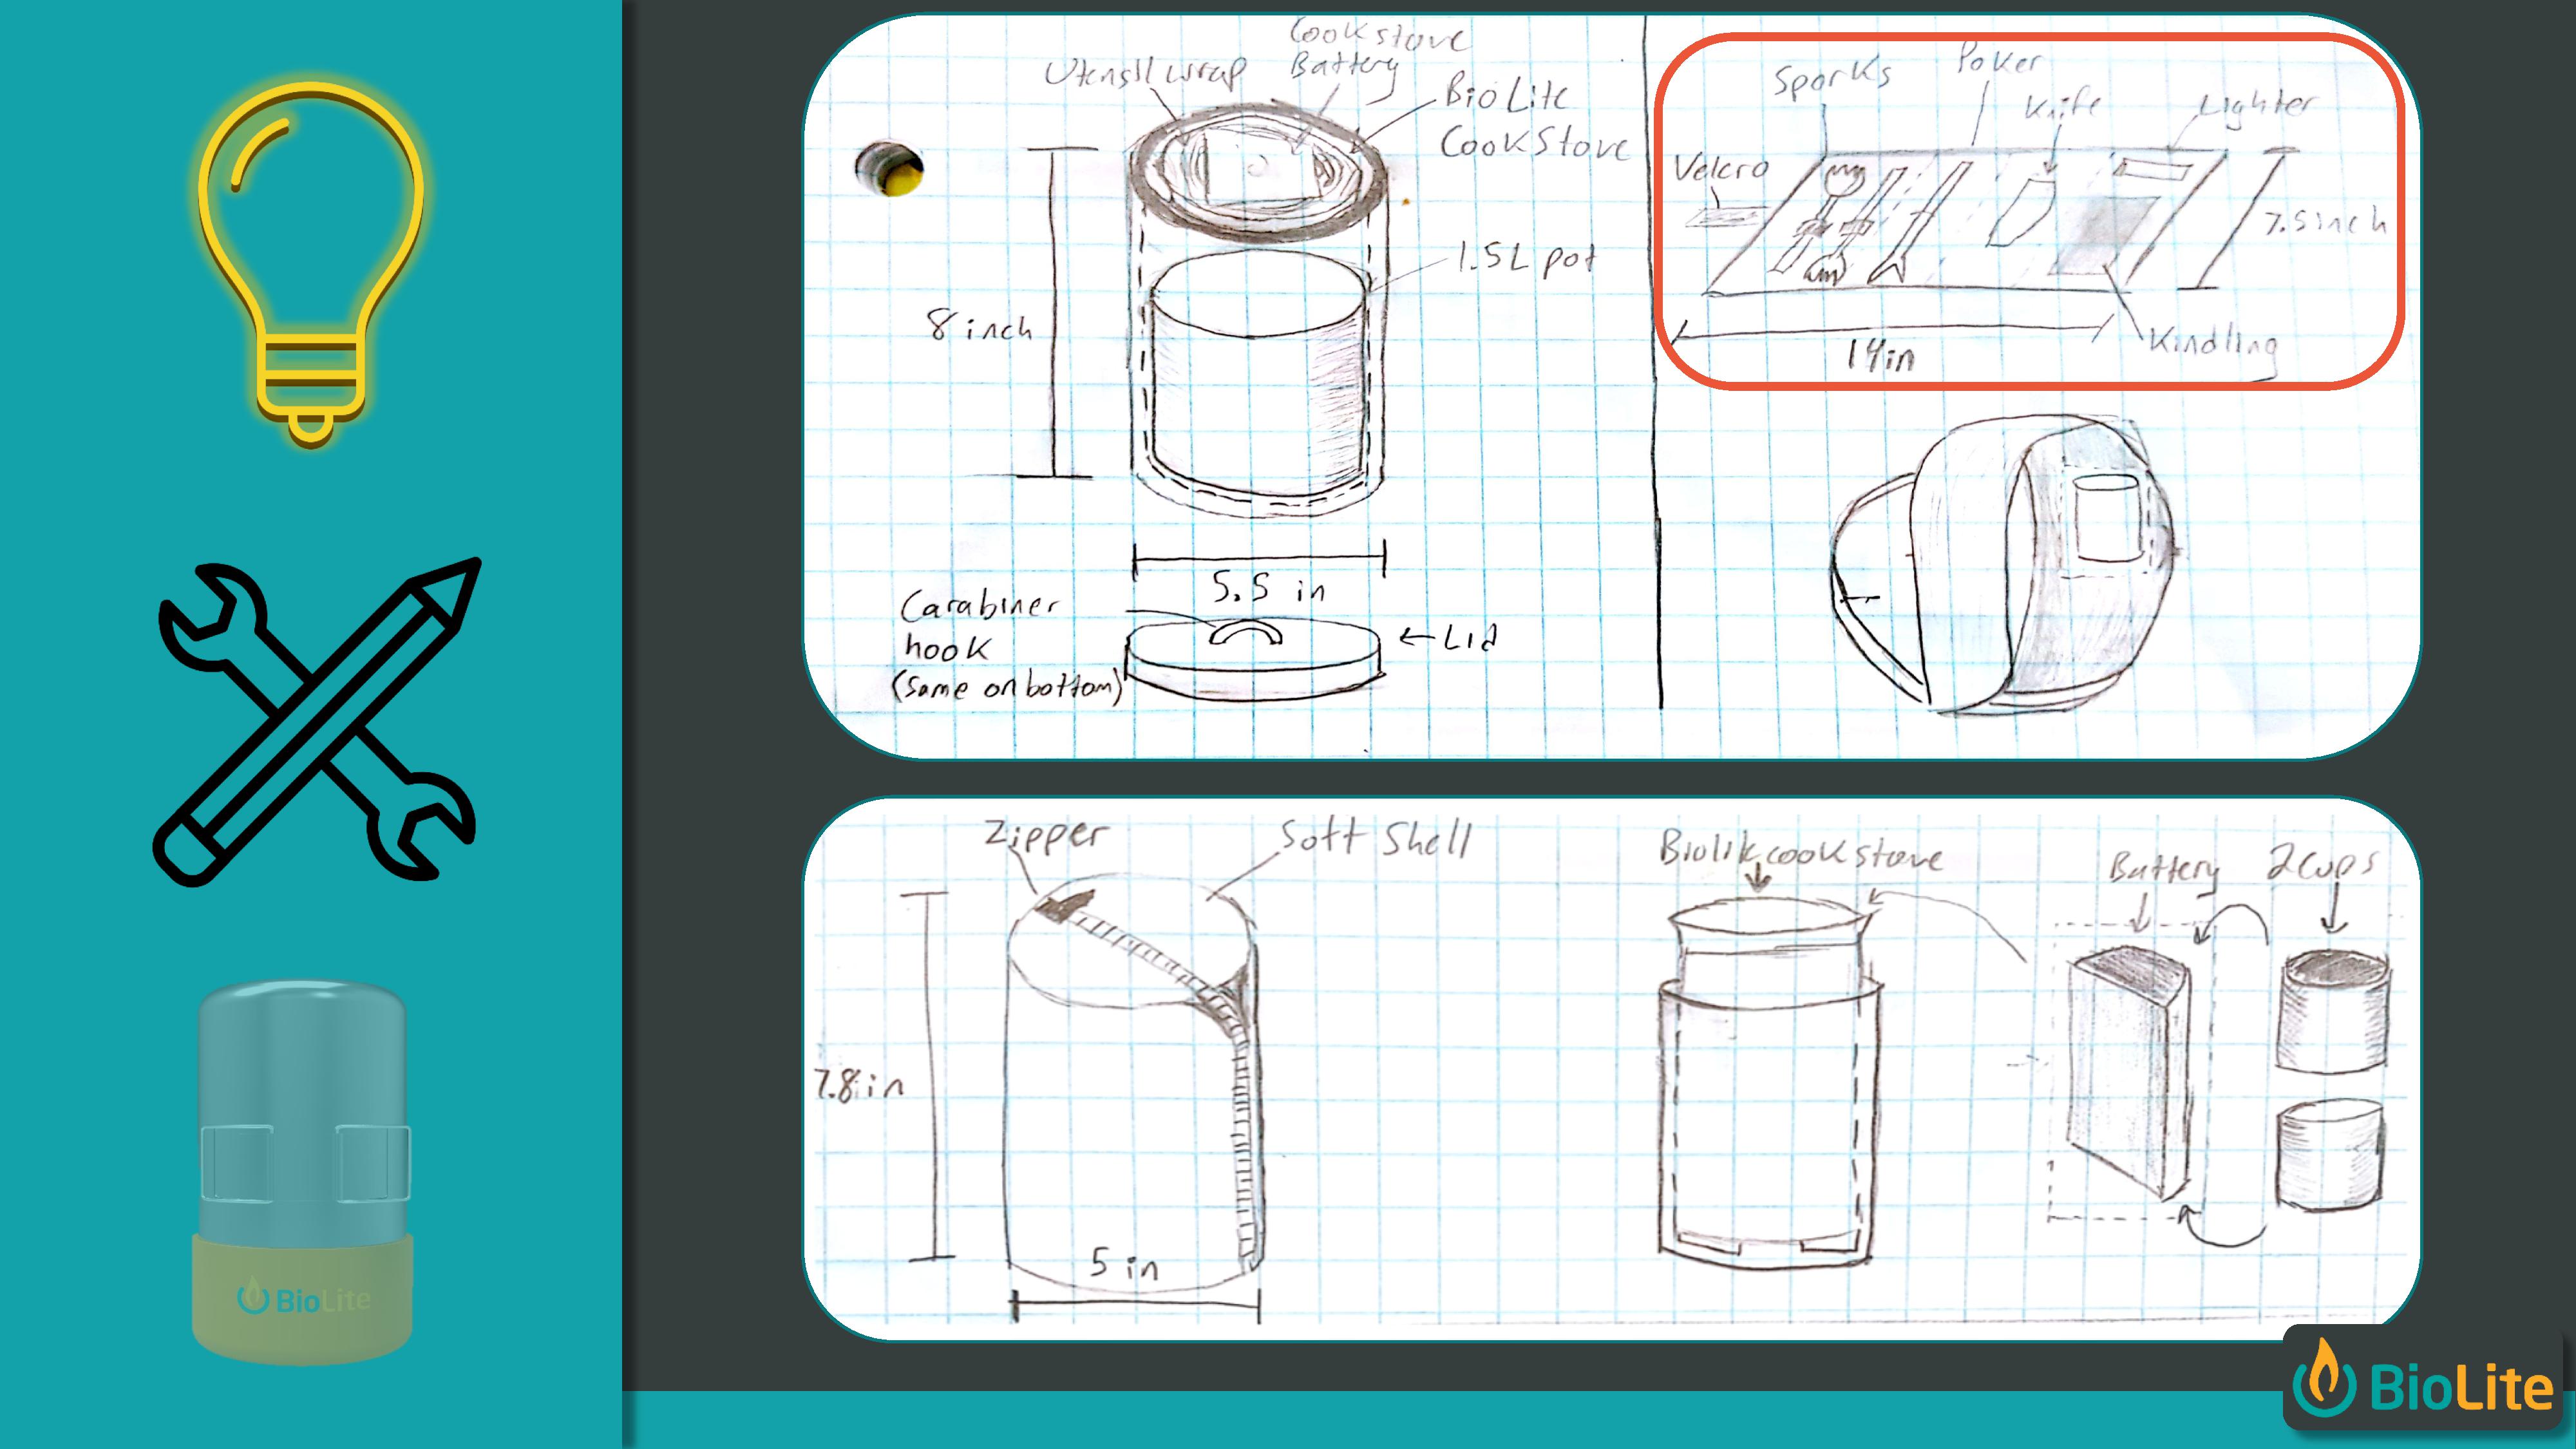 Utensil wrap
Cookstove
Battery
BioLite
CookStove
8 inch
1.5L pot
5.5 in
Carabiner
hook
(Same on bottom)
←Lid
Sporks
Poker
Knife
Lighter
Velcro
7.5inch
14in
Kindling
Zipper
Soft Shell
7.8in
5 in
Biolite cookstove
Battery
2cups
BioLite
BioLite